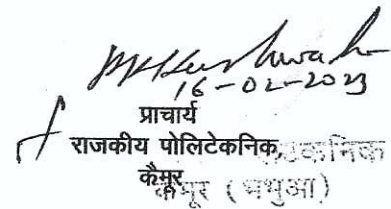 16-02-2023
प्राचार्य
राजकीय पोलिटेकनिक
कैमूर
कैमूर (भभुआ)